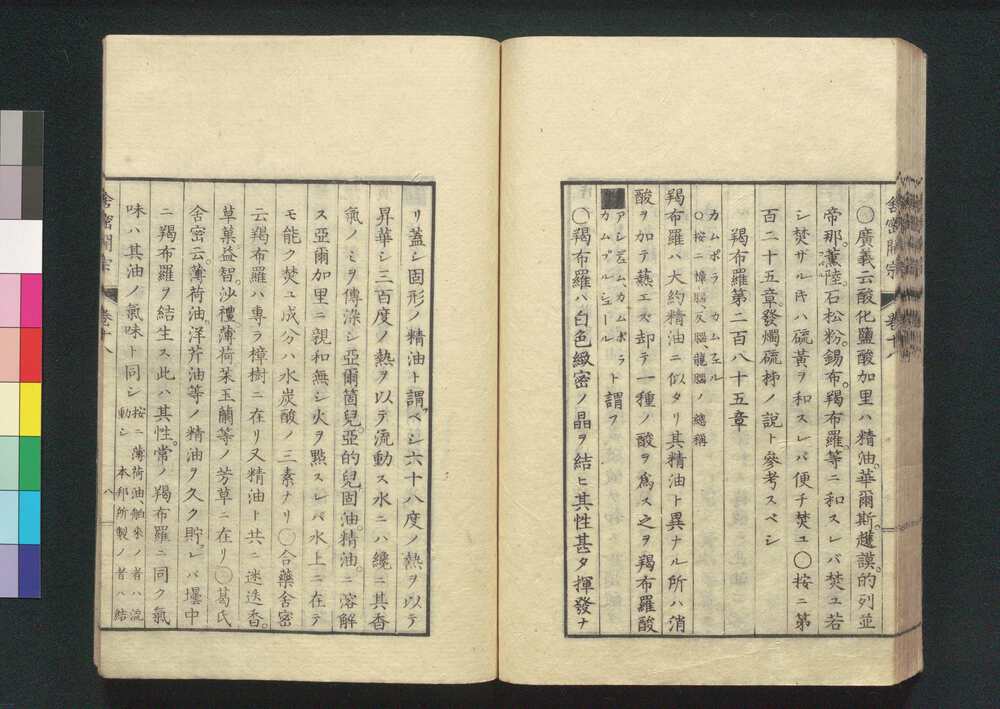 舍密開宗　卷十八
〇廣義云酸化鹽酸加里ハ精油。華爾斯。蘧謨。的列並
帝那。薰陸。石松粉。錫布。羯布羅。等ニ和スレバ焚ユ若
シ焚ザル𪜈ハ硫黃ヲ和スレバ便チ焚ユ〇按ニ第
百二十五章。發燭硫
ノ說ト參考スベシ
羯布羅第二百八十五章
カムポラ　カムフル
〇按ニ樟腦、反腦、龍腦ノ總稱
羯布羅ハ大約精油ニ似タリ其精油ト異ナル所ハ消
酸ヲ加テ熱エス却テ一種ノ酸ヲ爲ス之ヲ羯布羅酸
ト謂フ
〇羯布羅ハ白色緻密ノ晶ヲ結ヒ其性甚タ揮發ナ
リ蓋シ固形ノ精油ト謂ベシ六十八度ノ熱ヲ以テ
昇華シ三百度ノ熱ヲ以テ流動ス水ニハ纔ニ其香
氣ノミヲ傳滲シ亞爾箇兒。亞的兒固油。精油。ニ溶解
ス亞爾加里ニ親和無シ火ヲ點スレバ水上ニ在テ
モ能ク焚ユ成分ハ水炭酸ノ三素ナリ〇合藥舍密
云羯布羅ハ專ラ樟樹ニ在リ又精油ト共ニ迷迭香。
草菓。益智。沙禮。薄荷。茱玉蘭等ノ芳草ニ在リ〇葛氏
舍密云。薄荷油洋芹油等ノ精油ヲ久ク貯レバ壜中
ニ羯布羅ヲ結生ス此ハ其性。常ノ羯布羅ニ同ク氣
味ハ其油ノ氣味ト同シ
按ニ薄荷油舶來ノ者ハ流
動シ本邦所製ノ者ハ結
舍密開宗　卷十八
八